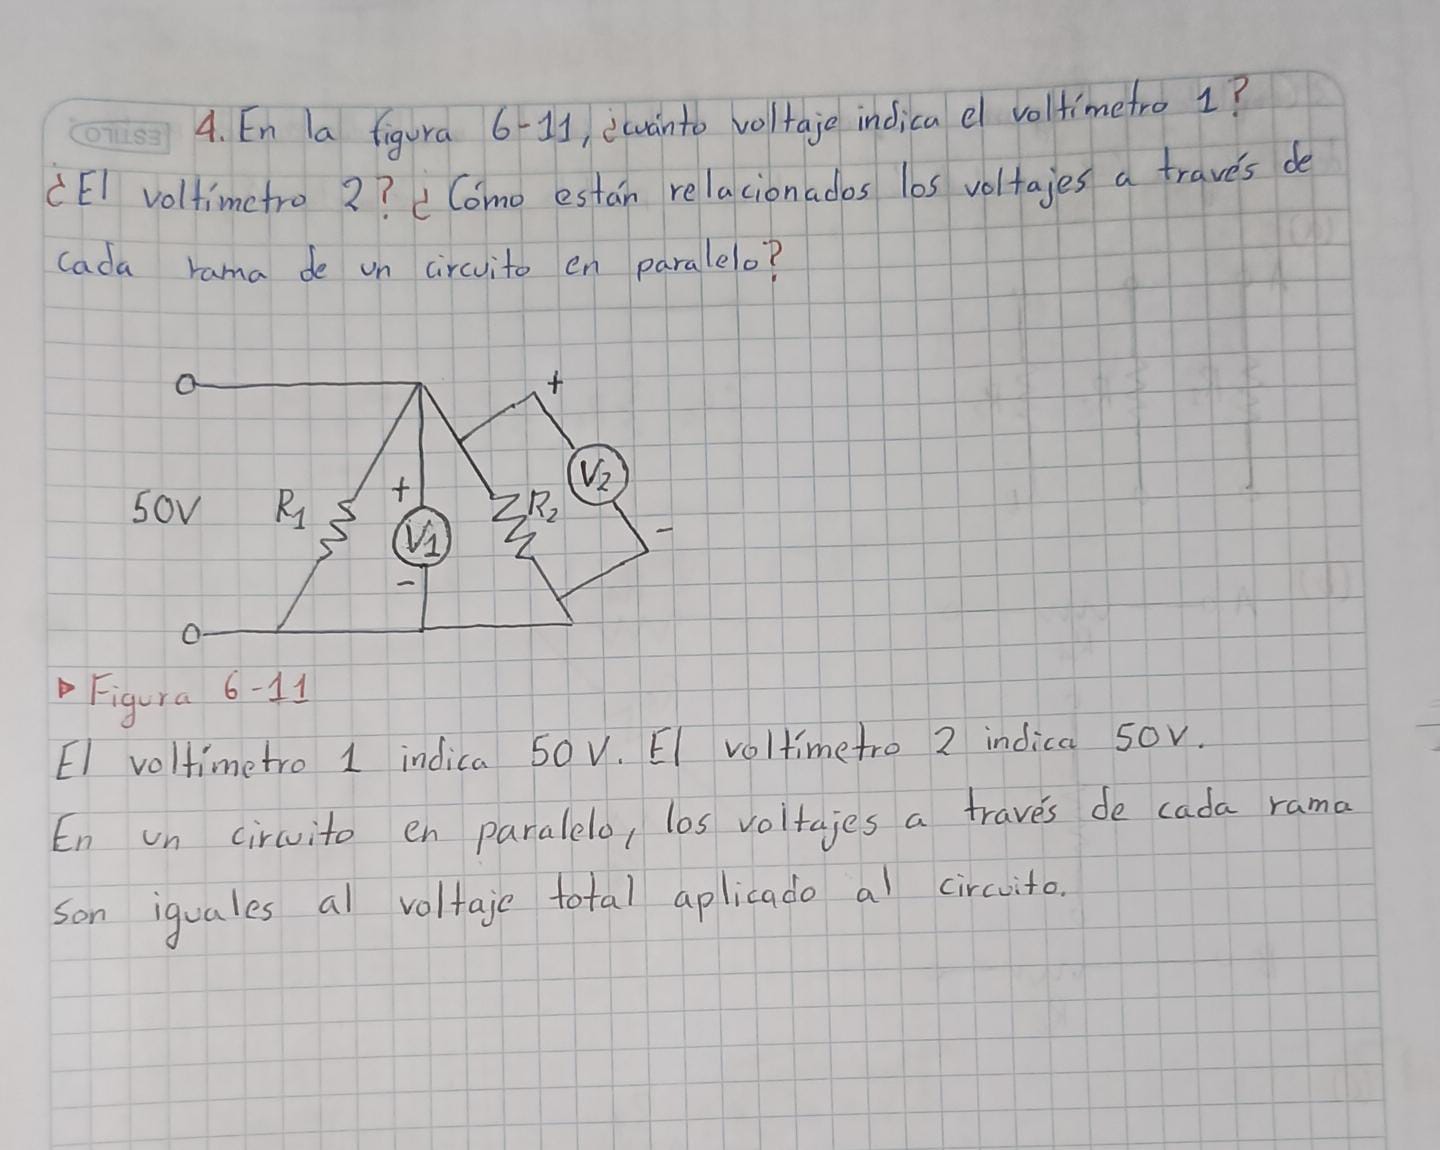 ESTILO
4. En la figura 6-11, ¿cuánto voltaje indica el voltímetro 1?
¿El voltímetro 2? ¿Cómo están relacionados los voltajes a través de
cada rama de un circuito en paralelo?
+
50V R₁ + V1 - R₂ V2 -
▶ Figura 6-11
El voltímetro 1 indica 50V. El voltímetro 2 indica 50V.
En un circuito en paralelo, los voltajes a través de cada rama
son iguales al voltaje total aplicado al circuito.